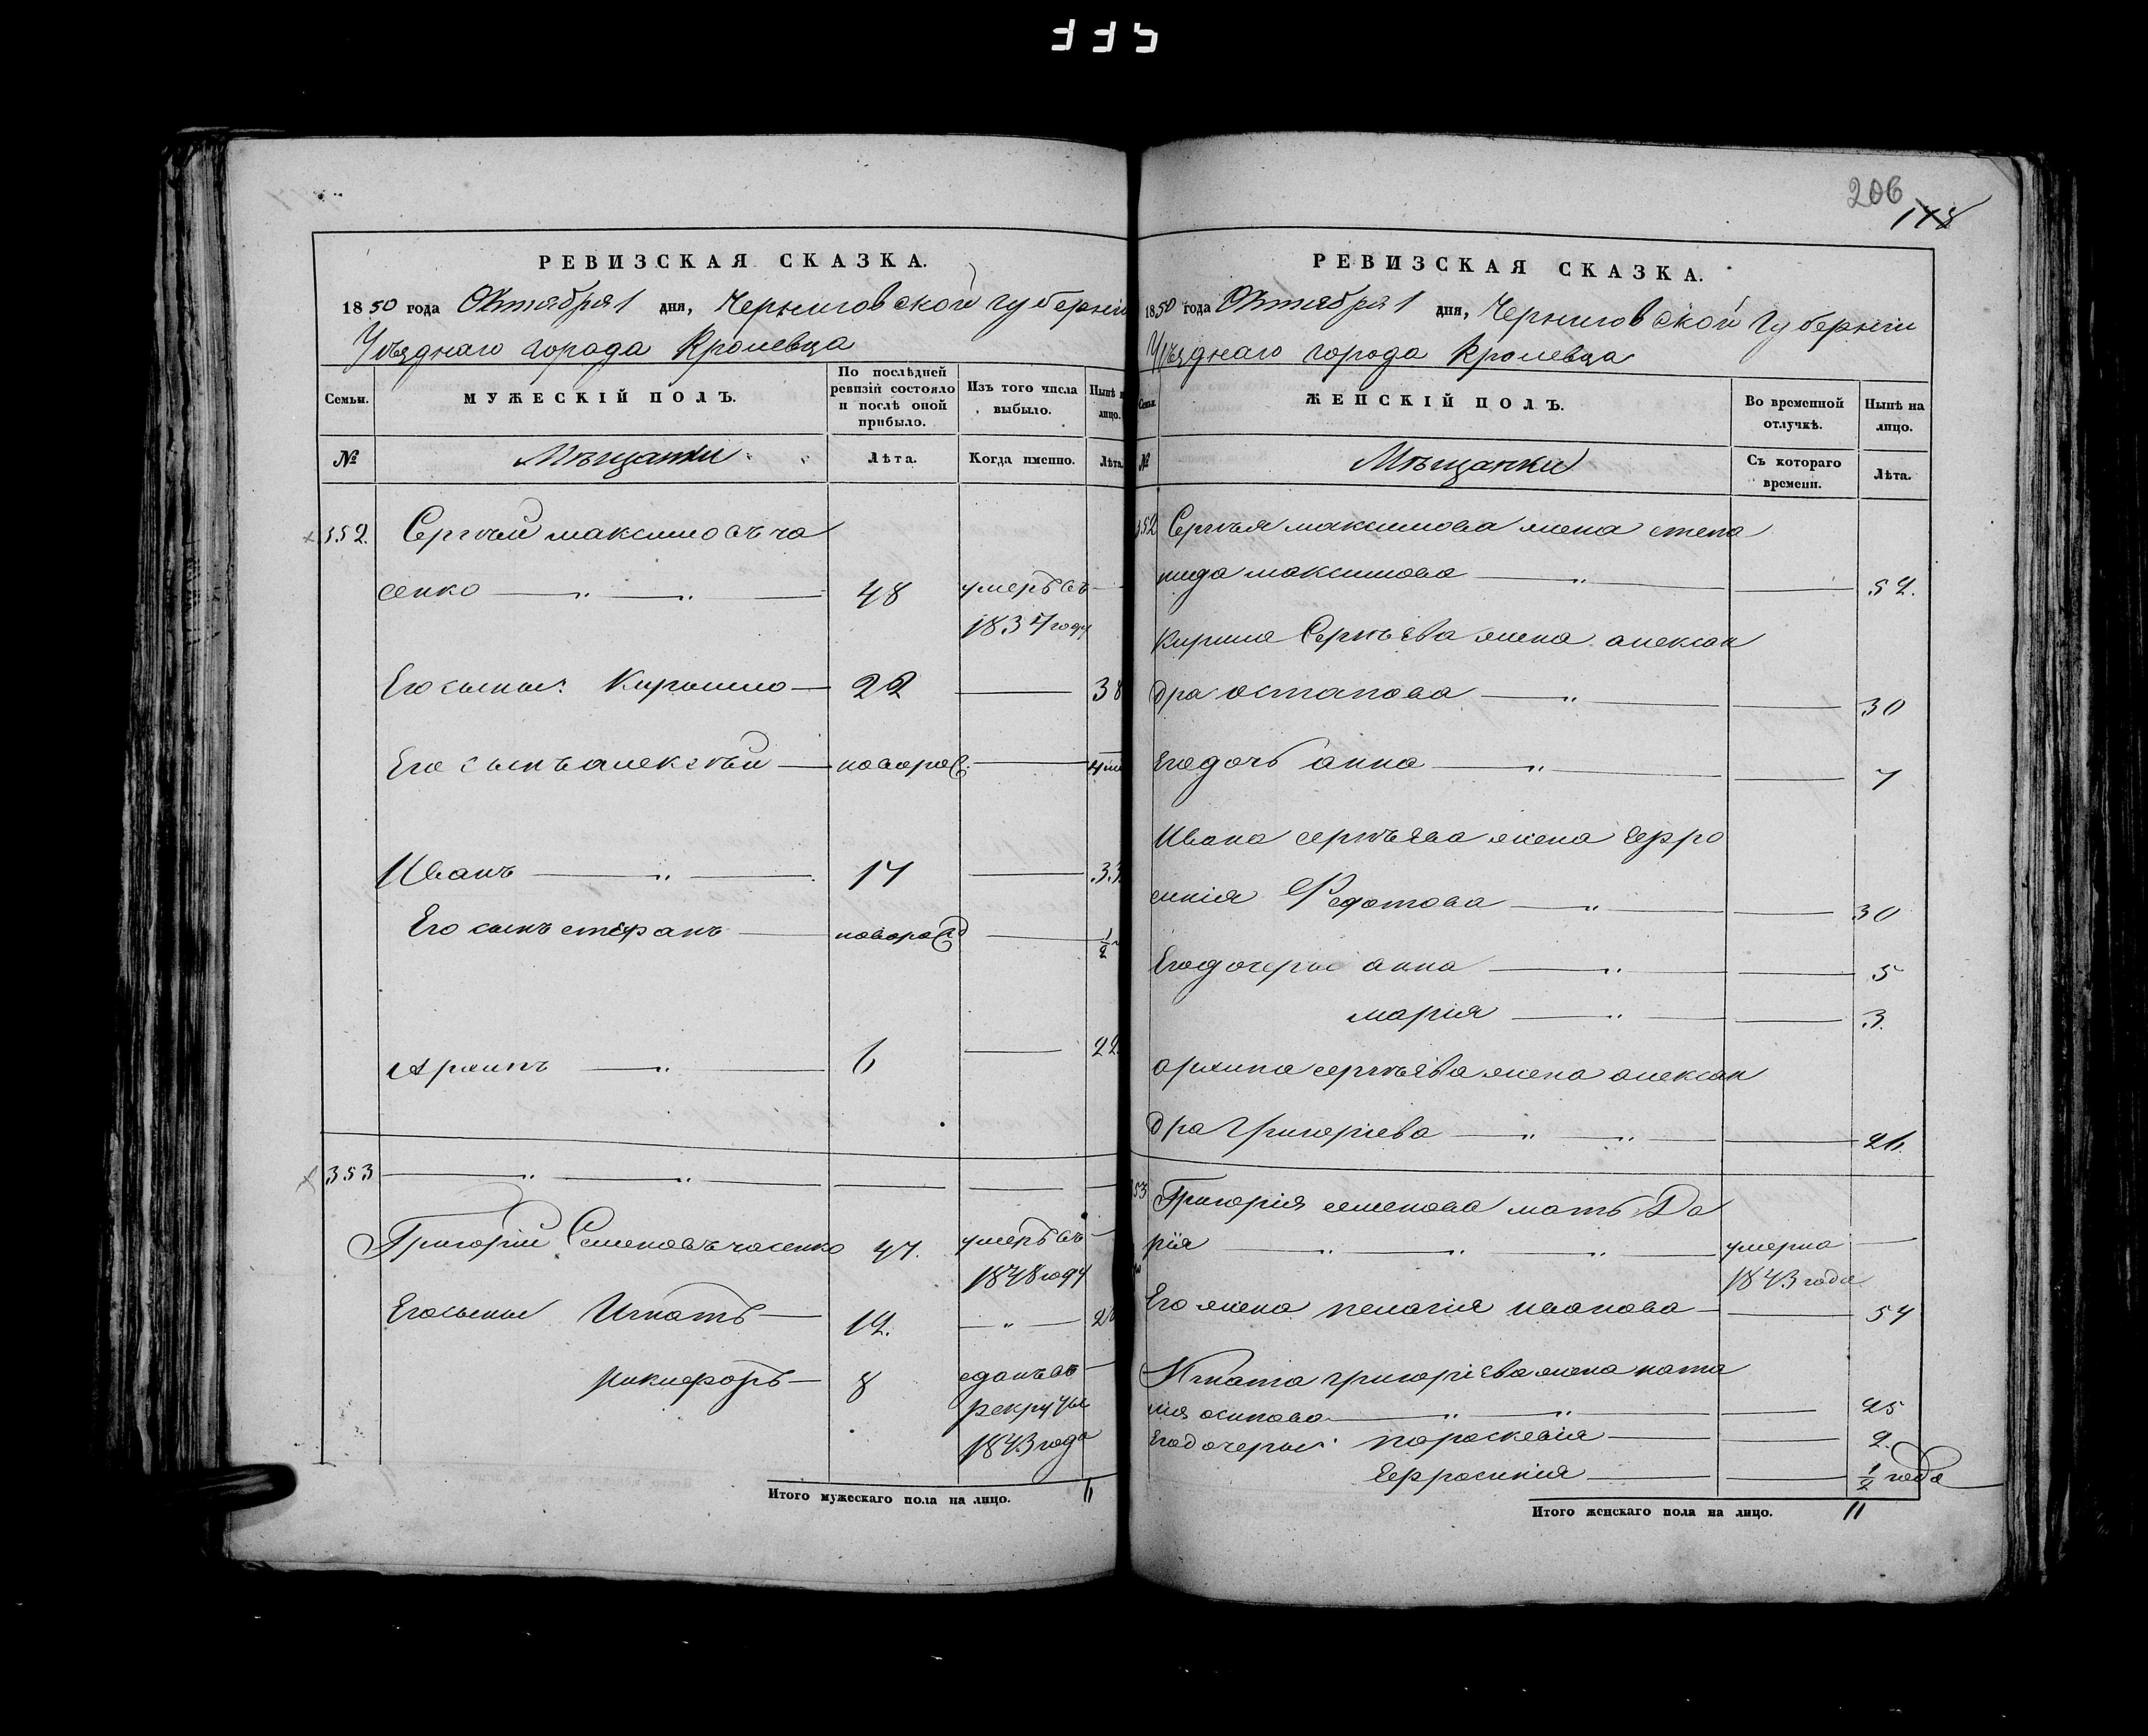 335
РЕВИЗСКАЯ СКАЗКА.
1850 года Октября 1 дня, Черниговской губерніи
Уѣзднаго города Кролевца
Семьи.
МУЖЕСКІЙ ПОЛЪ.
По послѣдней ревизіи состояло и послѣ оной прибыло.
Изъ того числа выбыло.
Нынѣ н лицо.
№ Мѣщани Лѣта. Когда именно. Лѣта
352. Сергѣй максимовъ ча
сенко 48 умеръ въ
1837 году
Его сыны: Кирыло 22 38
Его сынъ алексѣй новорож
Иванъ 17 33
Его сынъ стефанъ новорожд 1/2
Архипъ 6 22
353
Григорій Семеновъ часенко 47. умеръ въ
1848 году
Его сыны Игнатъ 12. 2
Никифоръ 8 сданъ въ
рекруты
1843 года
Итого мужескаго пола на лицо.
206
118
РЕВИЗСКАЯ СКАЗКА.
1850 года Октября 1 дня, Черниговской губерніи
Уѣзднаго города Кролевца
Семьи.
ЖЕНСКІЙ ПОЛЪ.
Во временной отлучкѣ.
Нынѣ на лицо.
№ Мѣщанки Съ котораго времени. Лѣта.
352 Сергѣя максимова жена степа
нида максимова 52.
Кирила Сергѣева жена алексан
дра остапова 30
Его дочь анна 7
Ивана сергѣева жена Ефро
синія Федотова 30
Его дочери анна 5
марія 3.
архипа сергѣева жена алексан
дра григоріева 21.
53 Григорія семенова мать Да
рія умерла
1843 года
Его жена пелагія иванова 54
Игната григоріева жена ната
лія осипова 25
Его дочеры: параскевія 2.
Ефросинія 1/2 года
Итого женскаго пола на лицо. 11